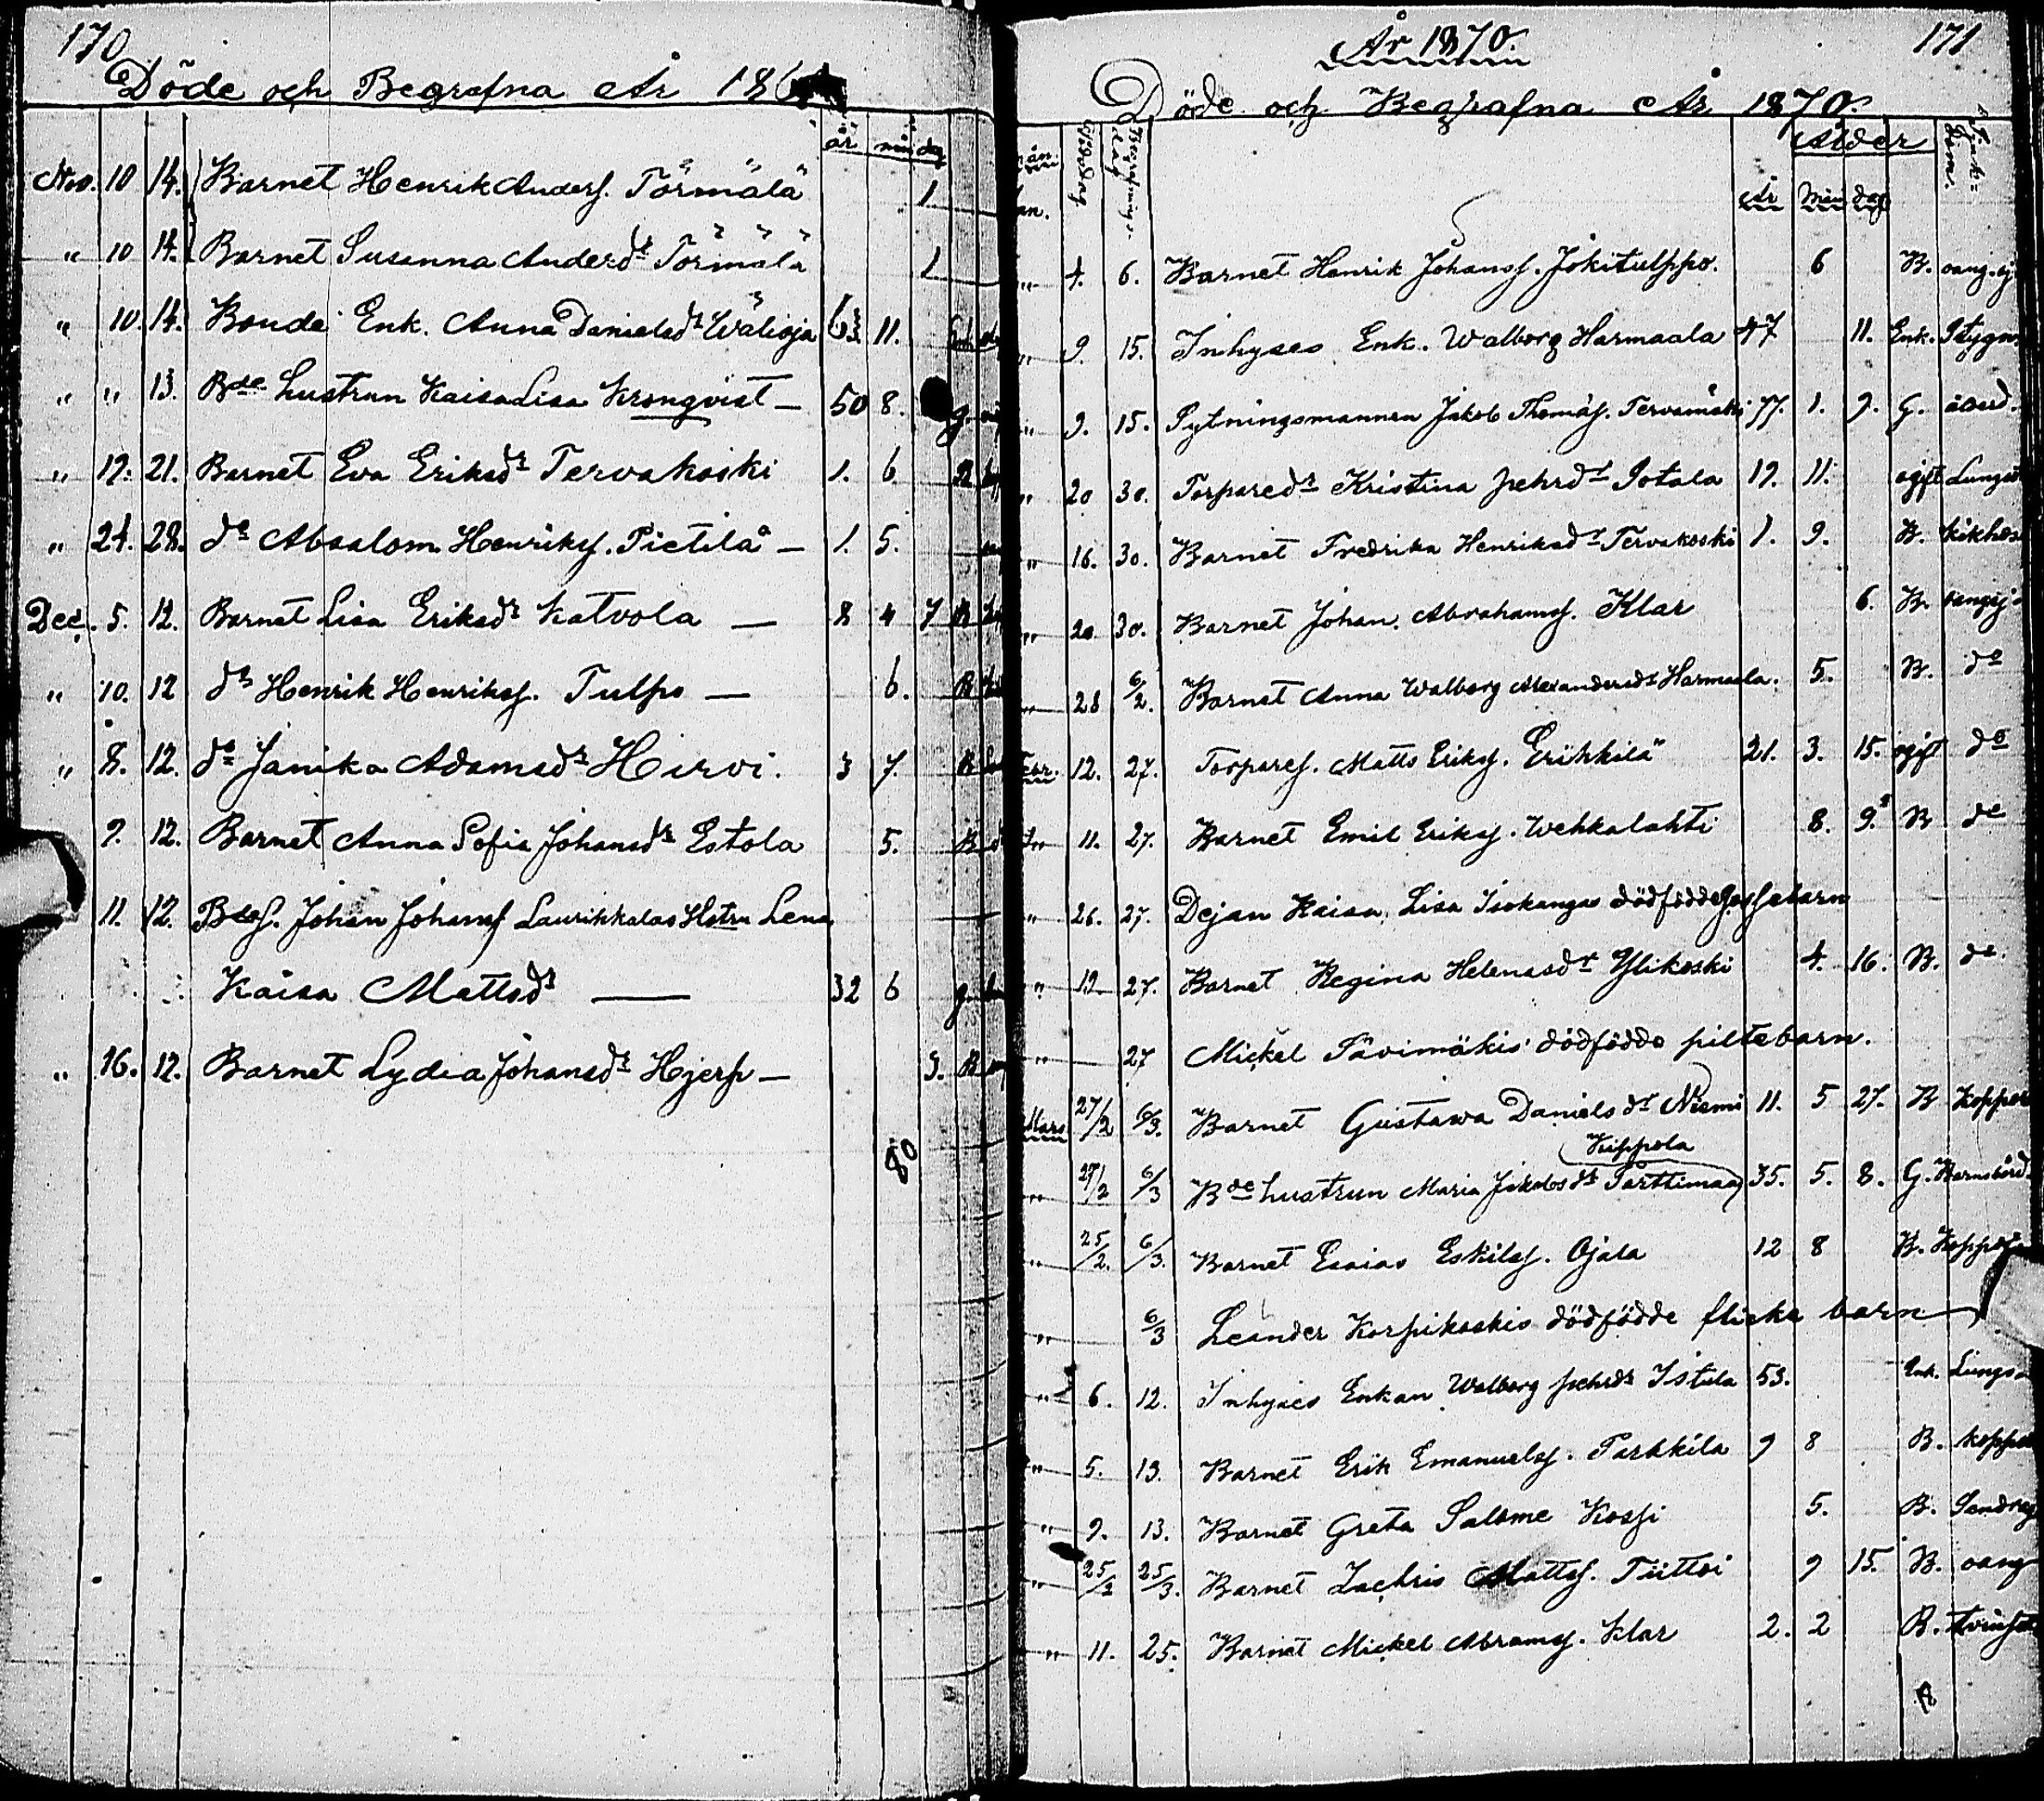 170
Döde och Begrafna År 186
år mån dag
Nov. 10 14. Barnet Henrik Anderss. Törmälä 1
" 10 14. Barnet Susanna Andersdr Törmälä 1
" 10. 14. Bonde Enk. Anna Danielsdr Wälioja 63 11.
" " 13. Bde hustrun Kaisa Lisa Kronqvist — 50 8. g.
" 19. 21. Barnet Eva Eriksdr Tervakoski 1. 6. B
" 24. 28. do Absalom Henrikss. Pietilä — 1. 5.
Dec. 5. 12. Barnet Lisa Eriksdr Katvola — 8 4 7 B
" 10. 12 do Henrik Henrikss. Tulpo — 6. B
" 8. 12. do Janika Adamsdr Hirvi. 3 7. B
9. 12. Barnet Anna Sofia Johansdr Estola 5. B
11. 12. Bdes. Johan Johanss Laurikkalas Hstru Lena
Kaisa Mattsdr — 32 6 g.
" 16. 12. Barnet Lydia Johansdr Hjerp — 3. B
80
År 1870. 171
Döde och Begrafna År 1870.
Ålder
År Mån dag
" 4. 6. Barnet Henrik Johanss. Jokitulppo. 6 B. oang. sj
" 9. 15. Inhyses Enk. Walborg Harmaala 47 11. Enk. Stygn
" 9. 15. Sytningsmannen Jakob Thomass. Tervamäki 77. 1. 9. G. ålderd.
" 20 30. Torparedr Kristina Pehrsdr Sotala 19. 11. ogift Lungsot
" 16. 30. Barnet Fredrika Henriksdr Tervakoski 1. 9. B. kikhos
" 20. 30. Barnet Johan Abrahamss. Klar 6. B. oang sj
" 28 6/2. Barnet Anna Walborg Alexandersdr Harmaala. 5. B. do
Febr. 12. 27. Torpares. Matts Erikss. Erikkilä 21. 3. 15. ogift do
" 11. 27. Barnet Emil Erikss. Wehkalahti 8. 9. B do
" 26. 27. Dejan Kaisa Lisa Isokangas dödfödde gossebarn
" 12. 27. Barnet Regina Helenasdr Ylikoski 4. 16. B. do
" 27 Mickel Tävimäkis dödfödde piltebarn.
Mars 27/2 6/3. Barnet Gustawa Danielsdr Niemi 11. 5 27. B Koppor
Kippola
" 27/2 6/3 Bde hustrun Maria Jakobsdr Parttimaa 35. 5. 8. G. Barnsbörd
" 25/2. 6/3. Barnet Esaias Eskilss. Ojala 12 8 B. Koppor
" 6/3 Leander Korpikoskis dödfödde flicke barn
" 6. 12. Inhyses Enkan Walborg Pehrsdr Istula 53. Enk. Lungs
" 5. 13. Barnet Erik Emanuelss. Parkkila 9 8 B. koppor
" 9. 13. Barnet Greta Salome Kossi 5. B. Sendrag
" 25/2 25/3. Barnet Zachris Mattss. Tiittoi 9 15. B. oang
" 11. 25. Barnet Mickel Abramss. Klar 2. 2 B.